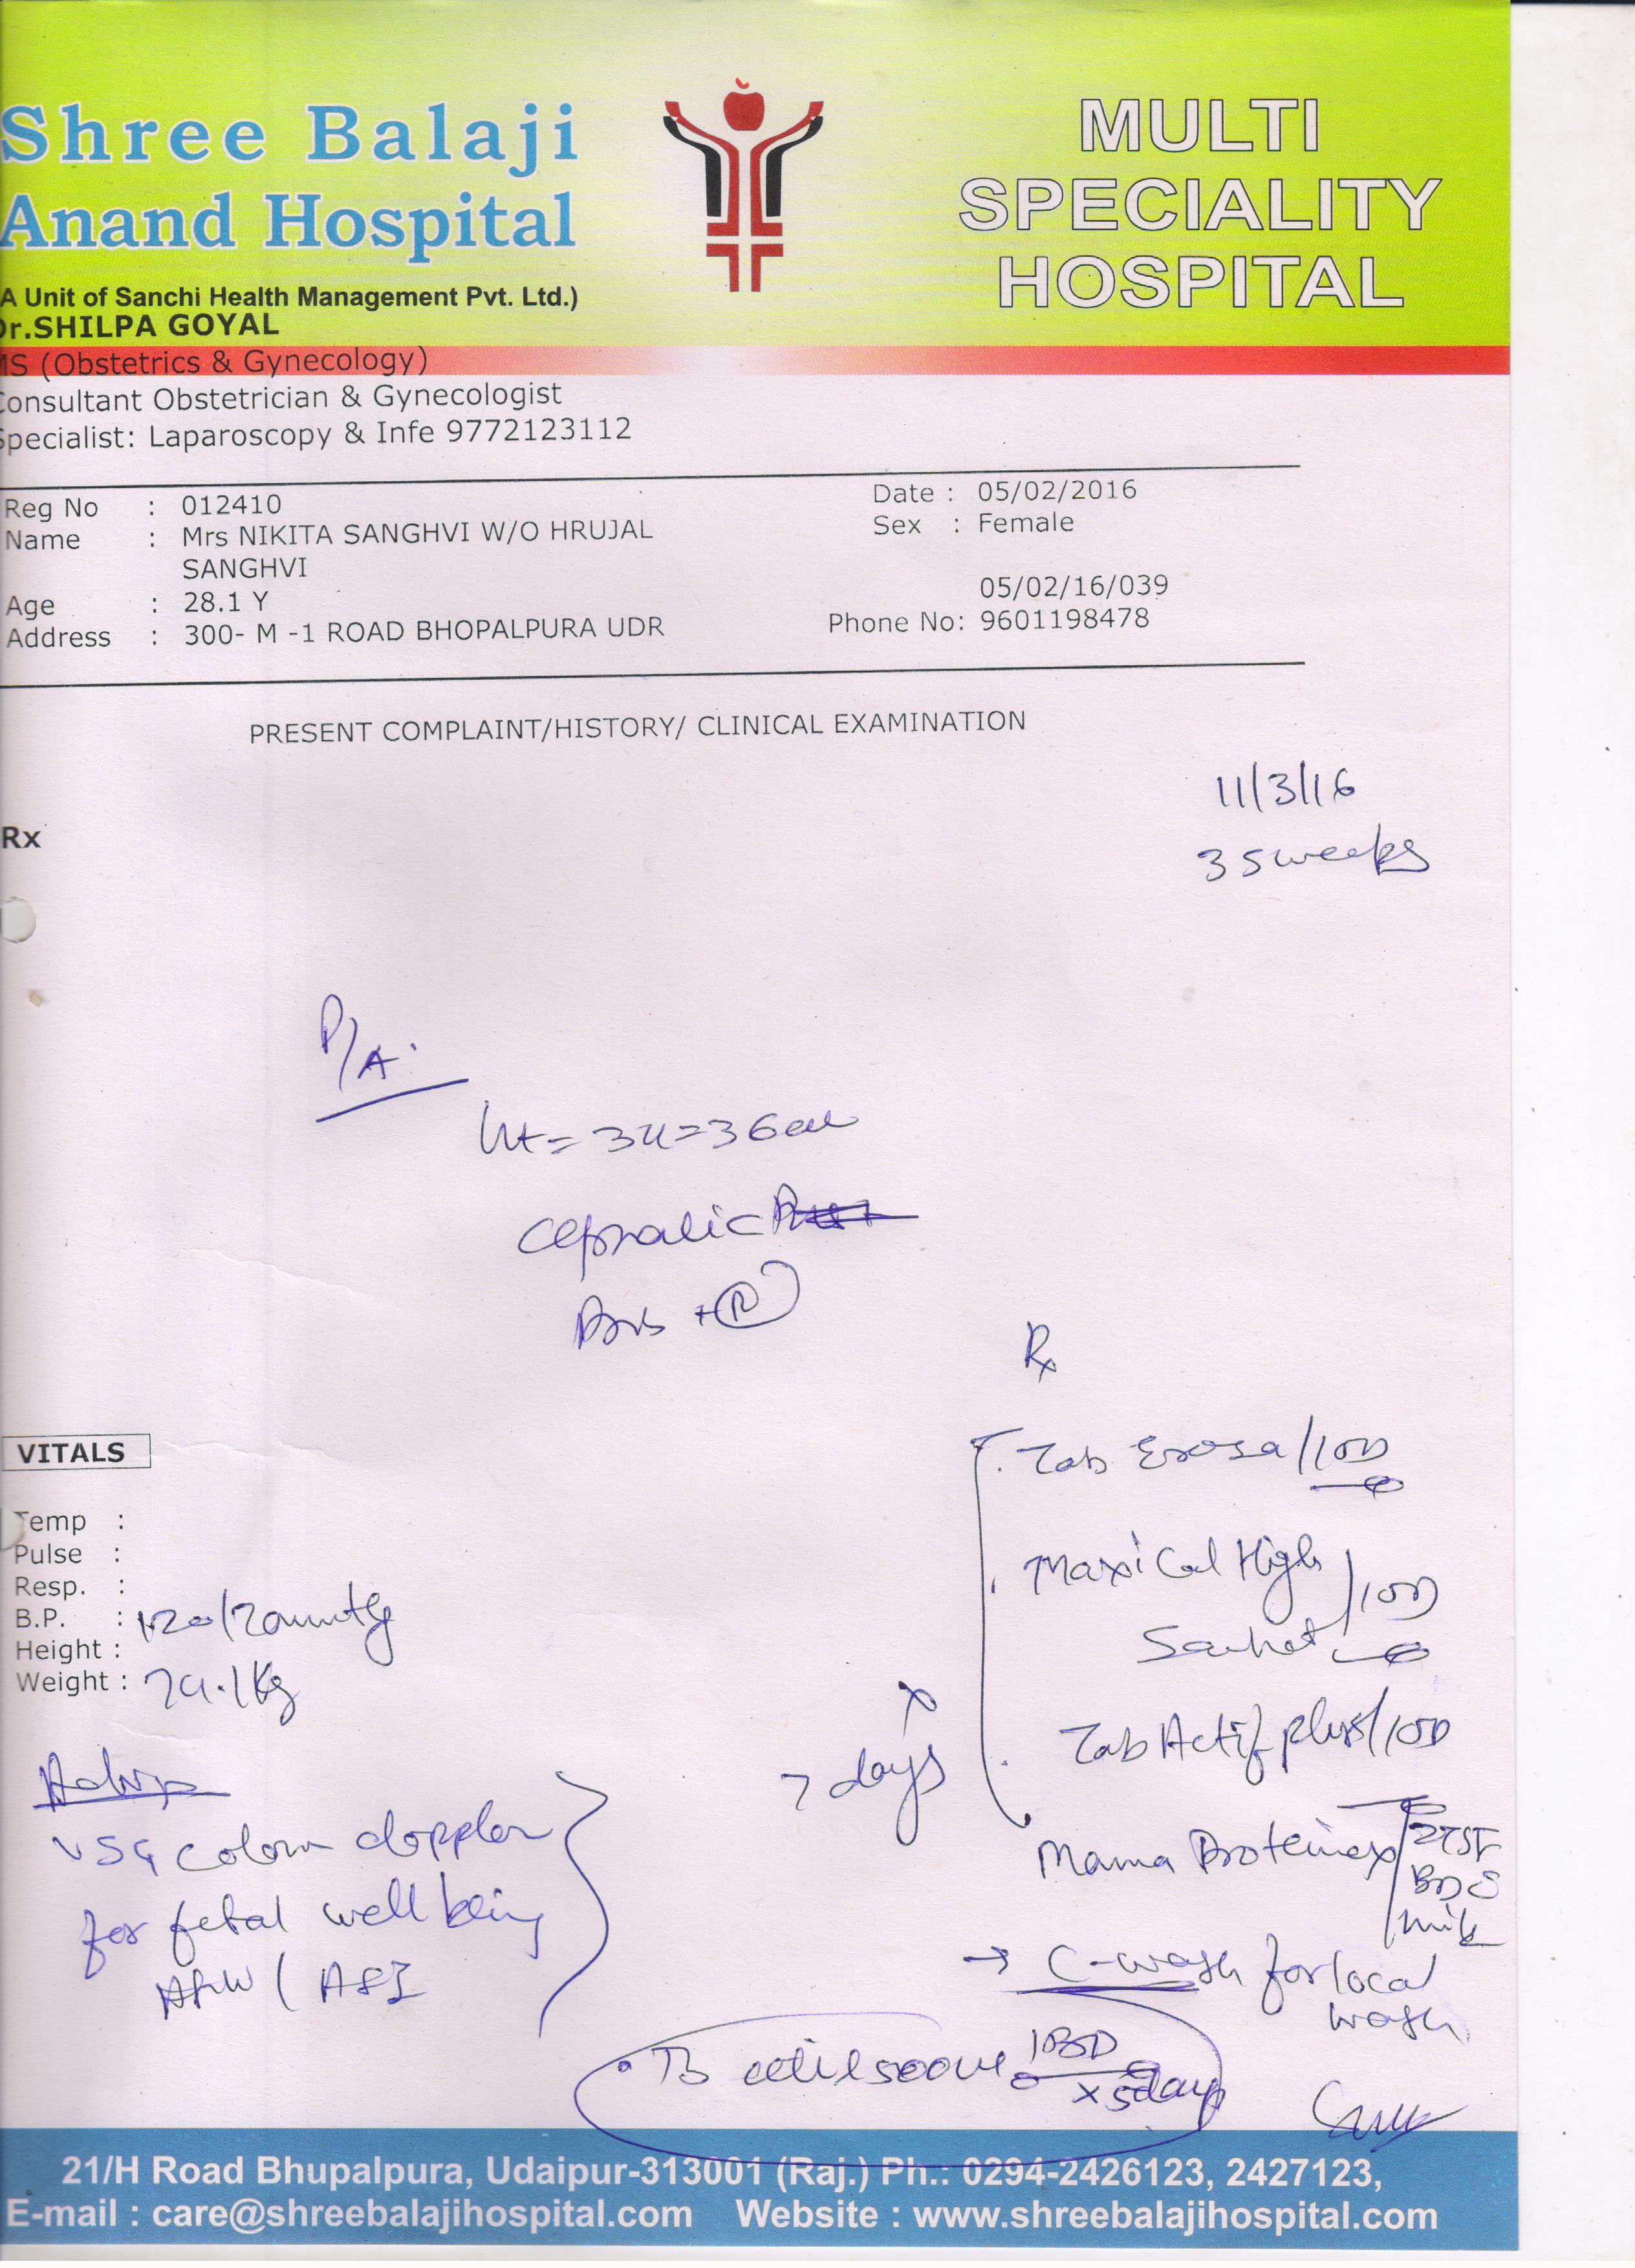 Shree Balaji
Anand Hospital
A Unit of Sanchi Health Management Pvt. Ltd.)
MULTI
SPECIALITY
HOSPITAL
Dr.SHILPA GOYAL
MS (Obstetrics & Gynecology)
Consultant Obstetrician & Gynecologist
Specialist: Laparoscopy & Infe 9772123112
Reg No : 012410
Date : 05/02/2016
Name : Mrs NIKITA SANGHVI W/O HRUJAL
SANGHVI
Sex : Female
05/02/16/039
Age : 28.1 Y
Address : 300- M -1 ROAD BHOPALPURA UDR
Phone No: 9601198478
PRESENT COMPLAINT/HISTORY/ CLINICAL EXAMINATION
11/3/16
35 weeks
Rx
P/A.
Cephalic
Rx
Tab /1OD
Maxical High
Sachet /1OD
Tab Actif plus/1OD
Mama Proteinex
BD
milk
x
7 days
→ C-wash for local
wash
1BD
x 5days
VITALS
Temp :
Pulse :
Resp. :
B.P. :
Height :
Weight :
Advise
USG Colour doppler
for fetal well being
21/H Road Bhupalpura, Udaipur-313001 (Raj.) Ph.: 0294-2426123, 2427123,
E-mail : care@shreebalajihospital.com Website : www.shreebalajihospital.com